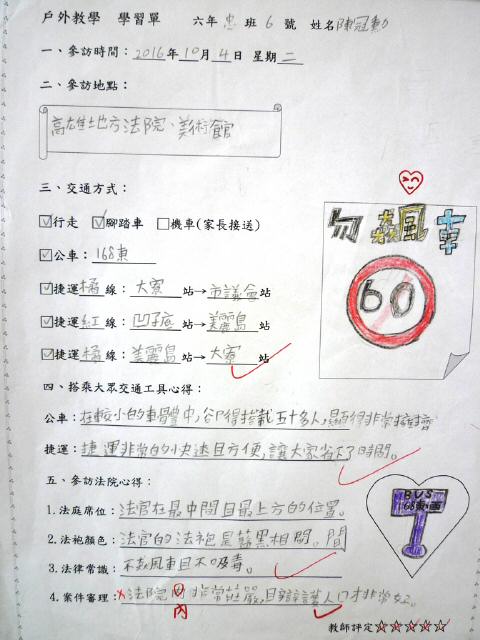 戶外教學 學習單 六年忠班6號 姓名陳冠勳
一、參訪時間：2016年10月4日 星期二
二、參訪地點：
高雄地方法院、美術館
三、交通方式：
☑行走 ☑腳踏車 □機車(家長接送)
☑公車：168東
☑捷運橘線：大寮站→市議會站
☑捷運紅線：凹子底站→美麗島站
☑捷運橘線：美麗島站→大寮站
勿飆車
60
四、搭乘大眾交通工具心得：
公車：在較小的車體中,卻得搭載五十多人,顯得非常擁擠
捷運：捷運非常的快速且方便,讓大家省下了時間。
五、參訪法院心得：
1.法庭席位：法官在最中間且最上方的位置。
2.法袍顏色：法官的法袍是藍黑相間。間
3.法律常識：不飆車且不吸毒。
4.案件審理：法院內非常莊嚴,且辯護人口才非常好。
內
BUS
168東
教師評定☆☆☆☆☆